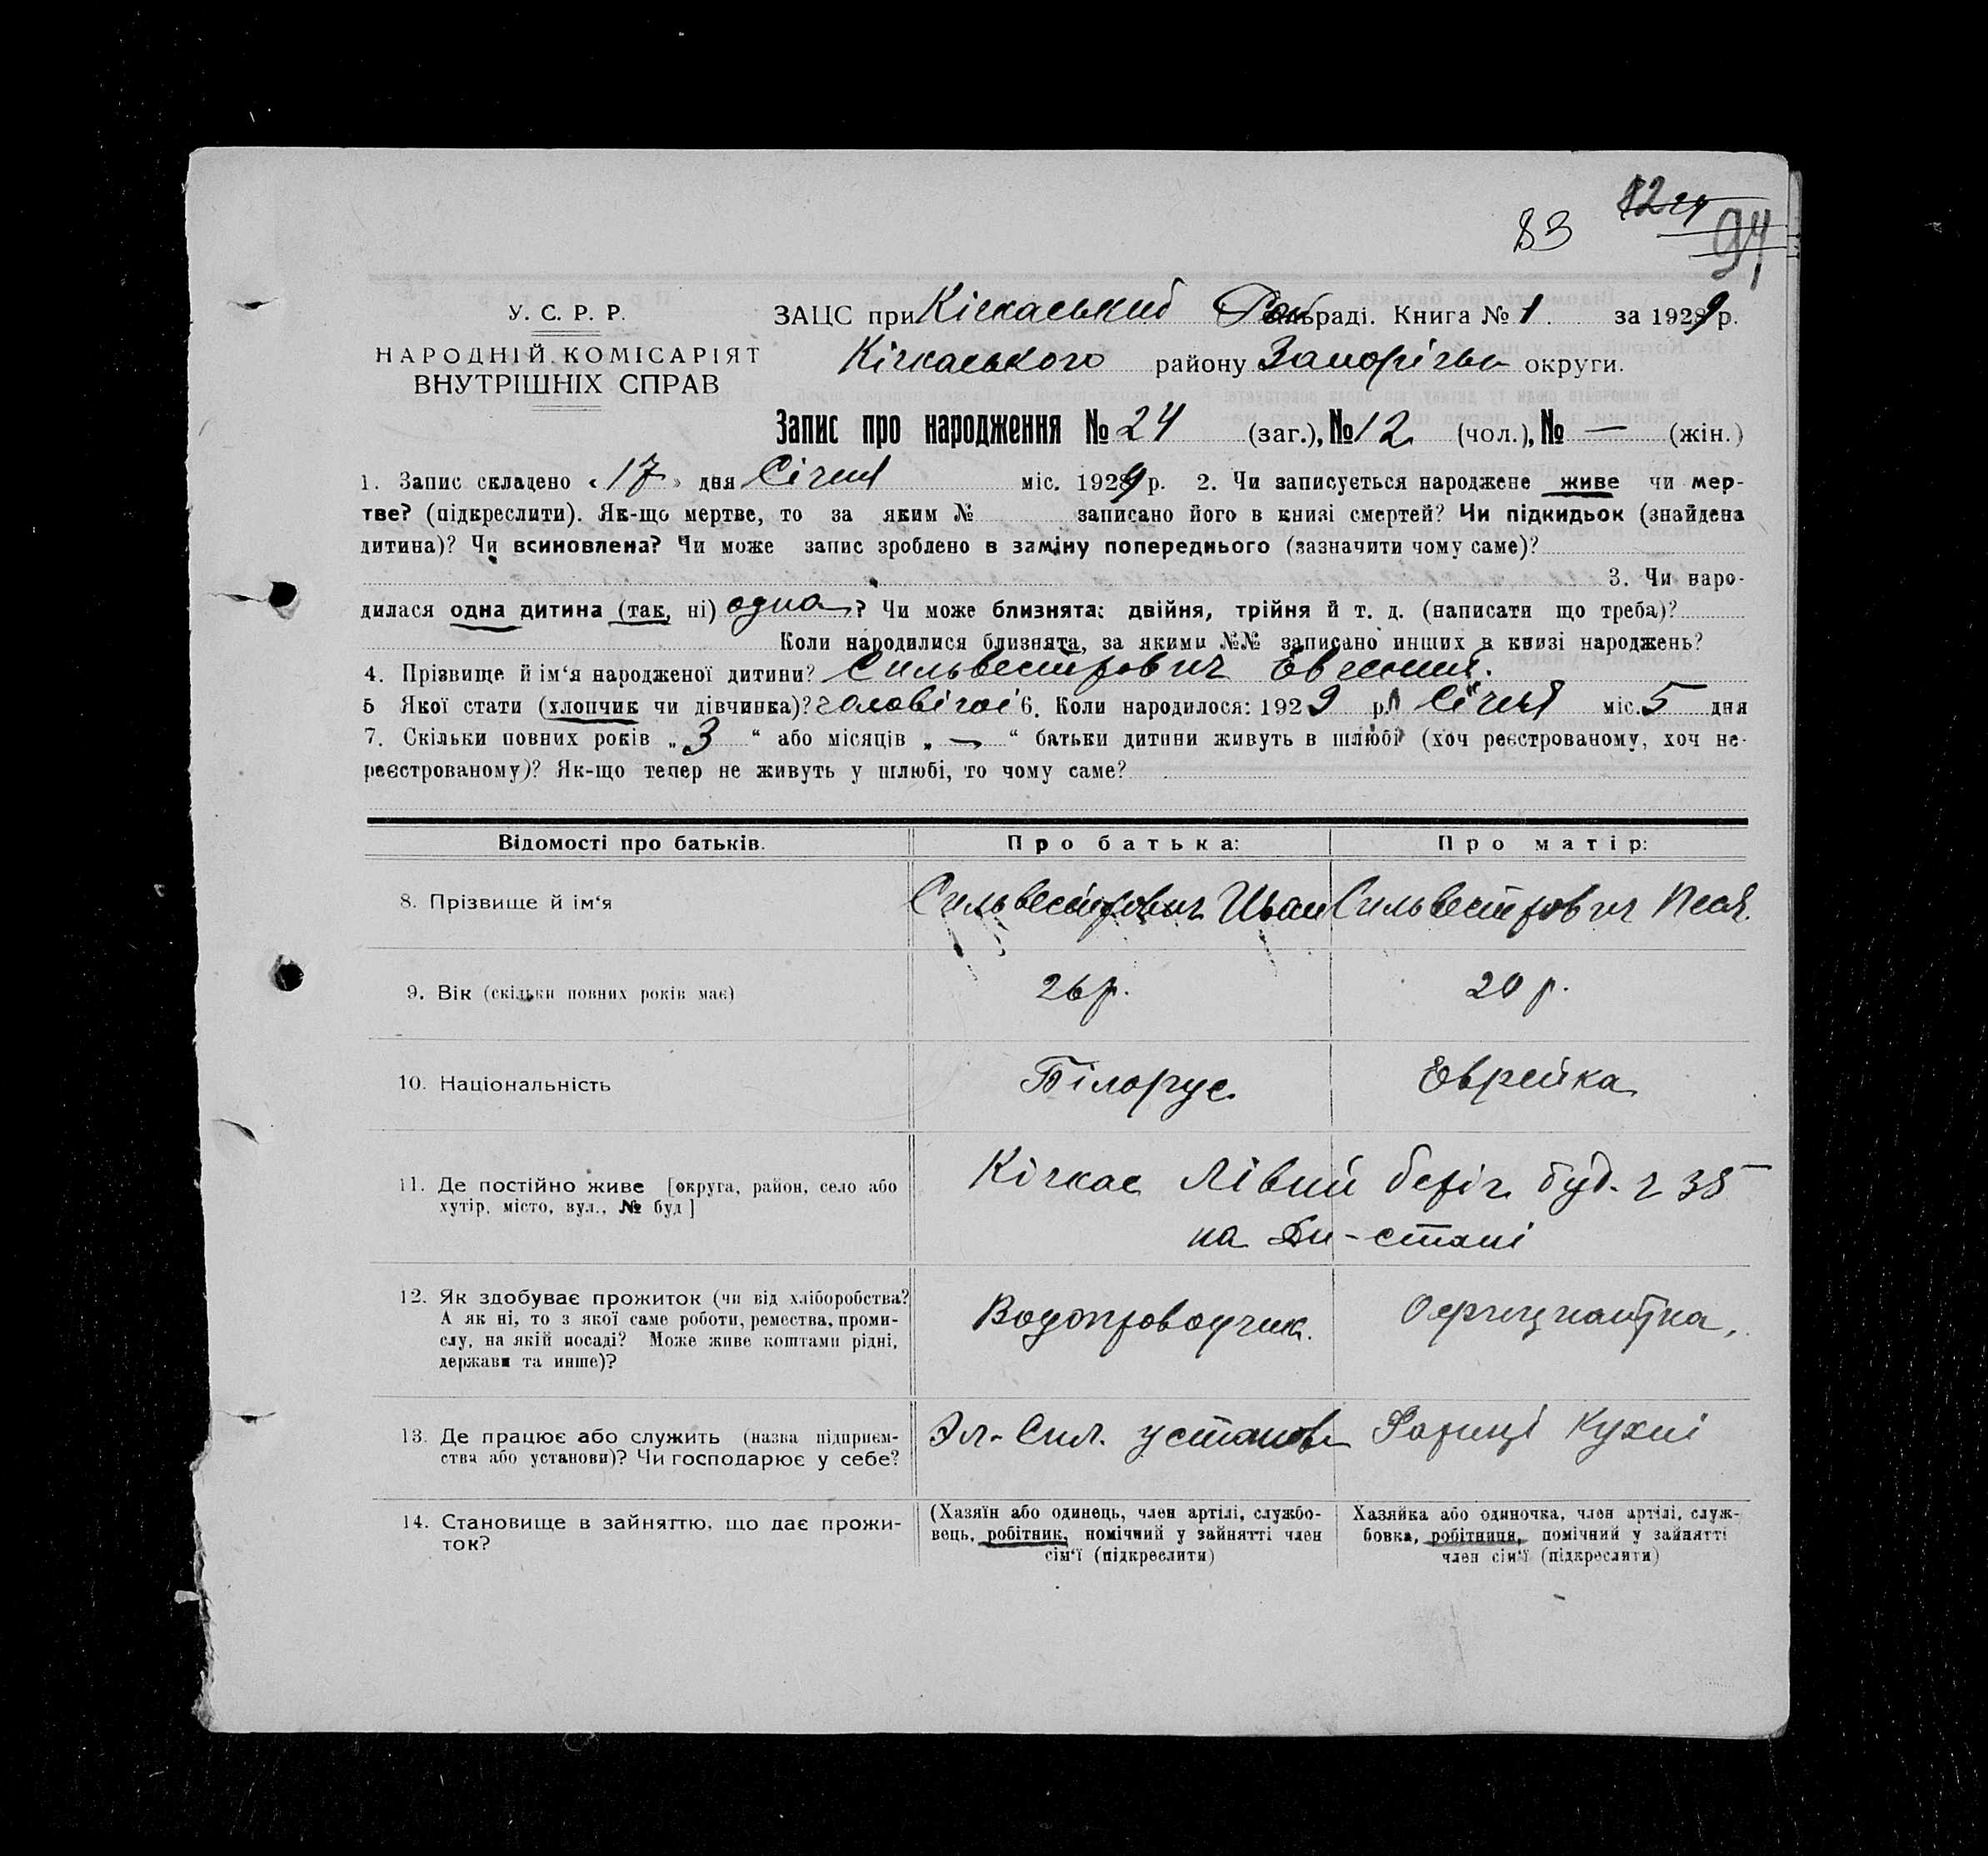 83 94
У. С. Р. Р.
НАРОДНІЙ КОМІСАРІЯТ
ВНУТРІШНІХ СПРАВ
ЗАЦС при Кічкаський раді. Книга № 1 за 1929 р.
Кічкаського району Запорізьк округи.
Запис про народження № 24 (заг.), № 12 (чол.), № — (жін.)
1. Запис складено «17» дня Січня міс. 1929 р. 2. Чи записується народжене живе чи мер-
тве? (підкреслити). Як-що мертве, то за яким № записано його в книзі смертей? Чи підкидьок (знайдена
дитина)? Чи всиновлена? Чи може запис зроблено в заміну попереднього (зазначити чому саме)?
3. Чи наро-
дилася одна дитина (так, ні) одна? Чи може близнята: двійня, трійня й т. д. (написати що треба)?
Коли народилися близнята, за якими №№ записано инших в книзі народжень?
4. Прізвище й ім‘я народженої дитини? Сильвестрович Евгений.
5 Якої стати (хлопчик чи дівчинка)? чоловічої 6. Коли народилося: 1929 р. Січня міс. 5 дня
7. Скільки повних років „3“ або місяців „—“ батьки дитини живуть в шлюбі (хоч реєстрованому, хоч не-
реєстрованому)? Як-що тепер не живуть у шлюбі, то чому саме?
Відомості про батьків. Про батька: Про матір:
8. Прізвище й ім‘я Сильвестрович Иван Сильвестрович Песя.
9. Вік (скільки повних років має) 26 р. 20 р.
10. Національність Білорус. Еврейка
11. Де постійно живе [округа, район, село або
хутір, місто, вул., № буд]
Кічкас Лівий беріг буд. ч 35
на
12. Як здобуває прожиток (чи від хліборобства?
А як ні, то з якої саме роботи, ремества, проми-
слу, на якій посаді? Може живе коштами рідні,
держави та инше)?
Водопроводчик. Официантка.
13. Де працює або служить (назва підприєм-
ства або установи)? Чи господарює у себе?
Эл-Сил. установ Фабриці Кухні
14. Становище в зайняттю, що дає прожи-
ток?
(Хазяїн або одинець, член артілі, службо-
вець, робітник, помічний у зайнятті член
сім‘ї (підкреслити)
Хазяйка або одиночка, член артілі, служ-
бовка, робітниця, помічний у зайнятті
член сім‘ї (підкреслити)